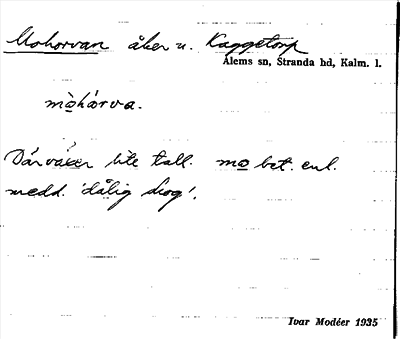 Mohorvan åker u. Kaggetorp
Ålems sn, Stranda hd, Kalm. l.
mòhárva.
Där växer lite tall. mo bet. enl.
medd. 'dålig skog'.
Ivar Modéer 1935